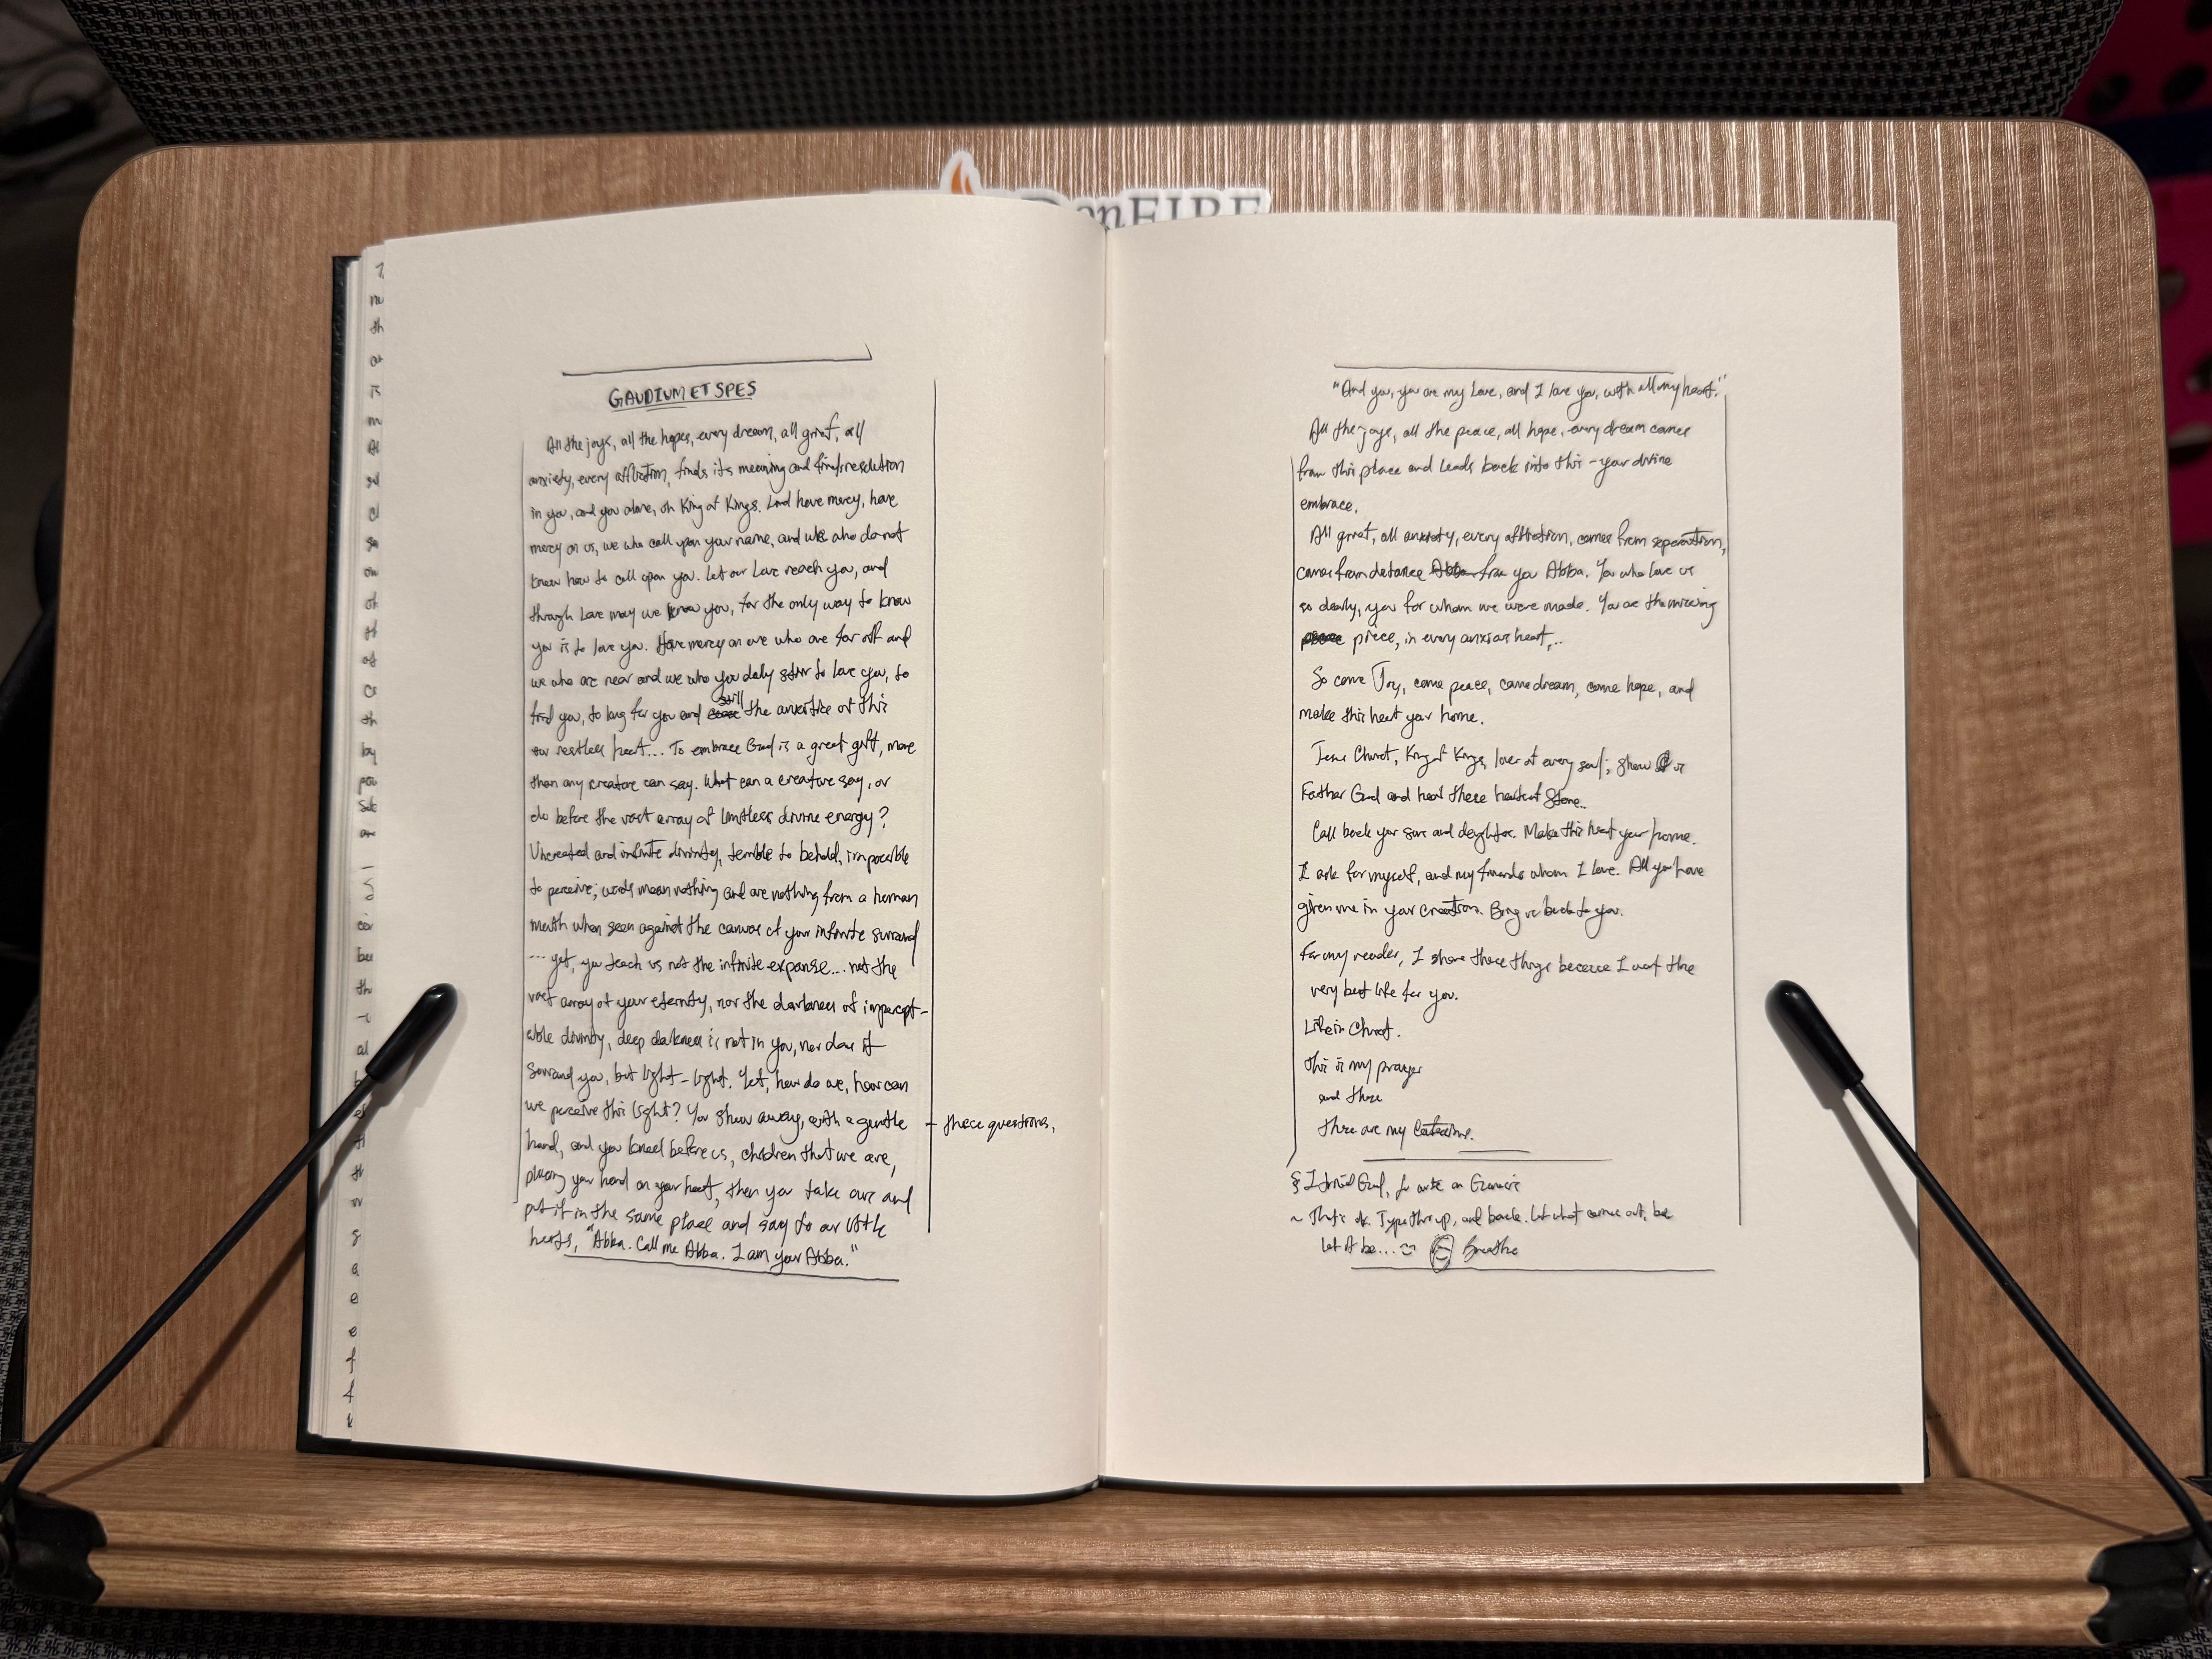 GAUDIUM ET SPES
All the joys, all the hopes, every dream, all grief, all
anxiety, every affliction, finds its meaning and final resolution
in you, and you alone, oh King of Kings. Lord have mercy, have
mercy on us, we who call upon your name, and we who do not
know how to call upon you. Let our Love reach you, and
through Love may we know you, for the only way to know
you is to love you. Have mercy on we who are far off and
we who are near and we who you daily stir to love you, to
find you, to long for you and still the anxieties of this
our restless heart... To embrace God is a great gift, more
than any creature can say. What can a creature say, or
do before the vast array of limitless divine energy?
Uncreated and infinite divinity, terrible to behold, impossible
to perceive; words mean nothing and are nothing from a human
mouth when seen against the canvas of your infinite surround
... yet, you teach us not the infinite expanse... not the
vast array of your eternity, nor the darkness of impercept-
able divinity, deep darkness is not in you, nor does it
surround you, but light - light. Yet, how do we, how can
we perceive this light? You shew away, with a gentle + these questions,
hand, and you kneel before us, children that we are,
placing your hand on your heart, then you take ours and
put it in the same place and say to our little
hearts, "Abba. Call me Abba. I am your Abba."
"And you, you are my Love, and I love you, with all my heart."
All the joys, all the peace, all hope, every dream comes
from this place and leads back into this - your divine
embrace.
All grief, all anxiety, every affliction, comes from separation,
comes from distance from you Abba. You who love us
so dearly, you for whom we were made. You are the missing
piece, in every anxious heart...
So come Joy, come peace, come dream, come hope, and
make this heart your home.
Jesus Christ, King of Kings, lover of every soul; show us
Father God and heal these hearts of stone..
Call back your sons and daughters. Make this heart your home.
I ask for myself, and my friends whom I love. All you have
given me in your creation. Bring us back to you.
For my reader, I share these things because I want the
very best life for you.
Life in Christ.
this is my prayer
and these
these are my
§ I tried God, to write on
~ That's ok. Type this up, and back. Let what comes out, be
let it be... Breathe